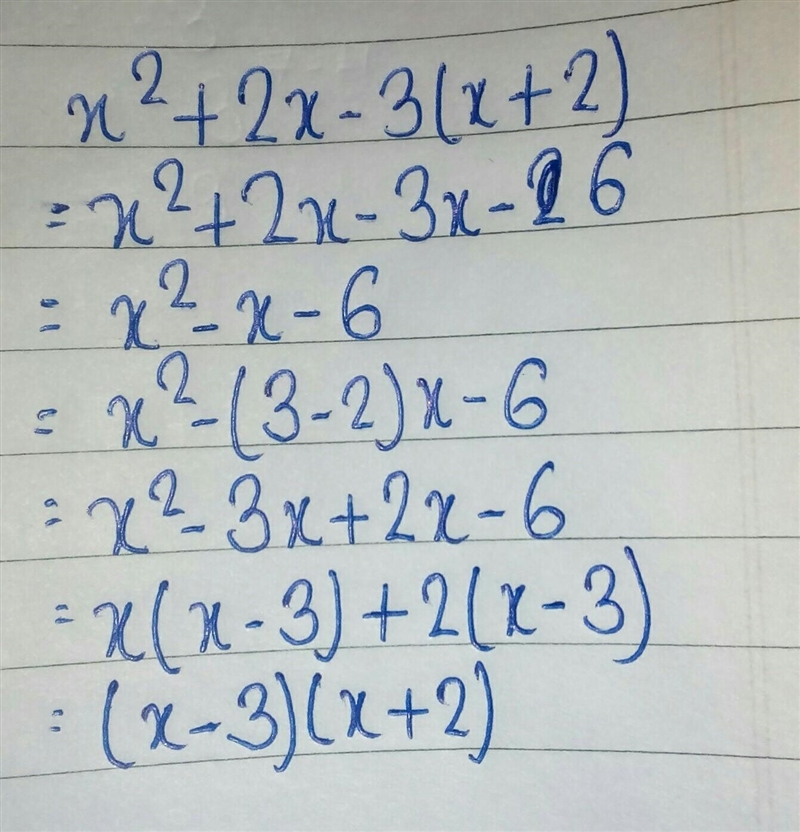 x²+2x-3(x+2)
=x²+2x-3x-6
=x²-x-6
=x²-(3-2)x-6
=x²-3x+2x-6
=x(x-3)+2(x-3)
=(x-3)(x+2)